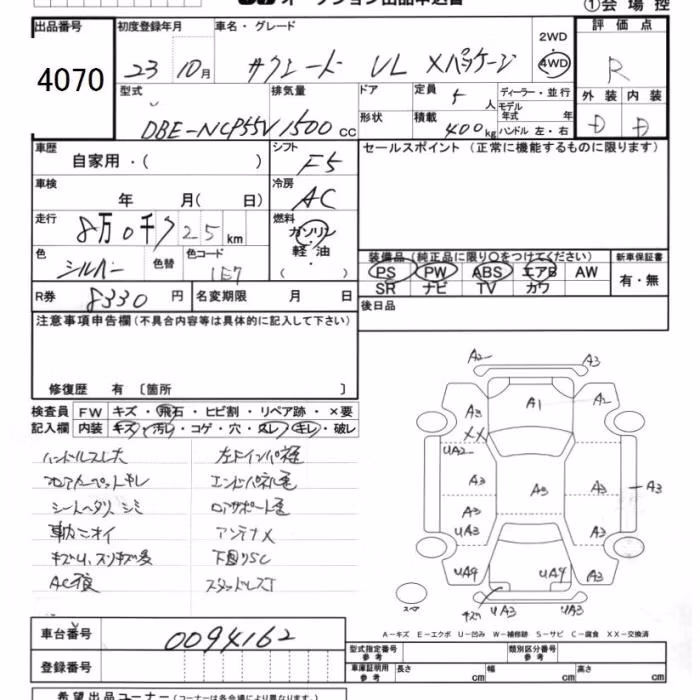 オークション出品申込書
①会場控
出品番号 初度登録年月 車名・グレード 評価点
4070 23 10月 サクシード UL Xパッケージ 2WD 4WD R
型式 排気量 ドア 定員 人 ディーラー・並行 外装 内装
DBE-NCP55V 1500cc 形状 積載 400kg モデル年式 年 ハンドル 左・右 D D
車歴 シフト セールスポイント (正常に機能するものに限ります)
自家用・( ) F5
車検 冷房
年 月( 日) AC
走行 燃料
8万0千 25 km ガソリン 軽・油 ( )
色 色替 色コード 装備品 (純正品に限り○をつけてください) 新車保証書
シルバー 1E7 PS PW ABS エアB AW 有・無
SR ナビ TV カワ
R券 8330 円 名変期限 月 日 後日品
注意事項申告欄 (不具合内容等は具体的に記入して下さい)
修復歴 有 〔箇所 〕
検査員 FW キズ・飛石・ヒビ割・リペア跡・×要
記入欄 内装 キズ・汚レ・コゲ・穴・スレ・キレ・破レ
ハンドルスレ大
フロアカーペットキレ
シートヘタリ シミ
車内ニオイ
左Fインパネ
エンドパネル
アンテナX
下回りSC
スタッドレスT
A2 A3
A3 A1 A2
XX
UA2
A3 A3 A3 A3
UA3 A3
UA4 UA4 A3
スペア キズ UA3 UA3
A-キズ E-エクボ U-凹み W-補修跡 S-サビ C-腐食 XX-交換済
車台番号 0094162
登録番号
型式指定番号 参考 類別区分番号 参考
車庫証明用 参考 長さ cm 幅 cm 高さ cm
希望出品コーナー (コーナーは各会場により異なります)